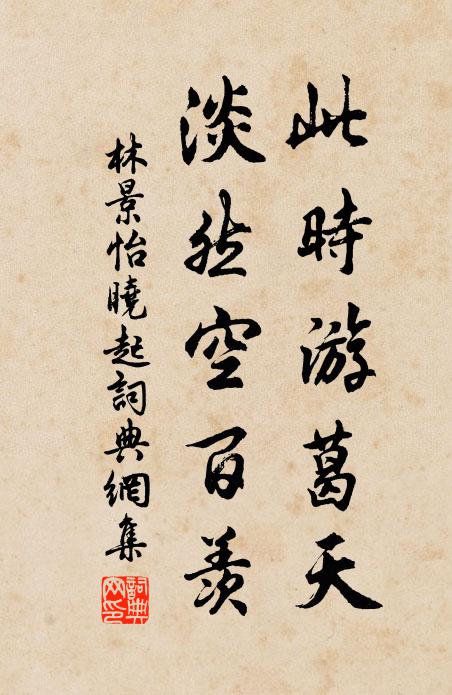 此時游葛天
淡然空百羨
林景怡曉起詞典網集
詞典網印